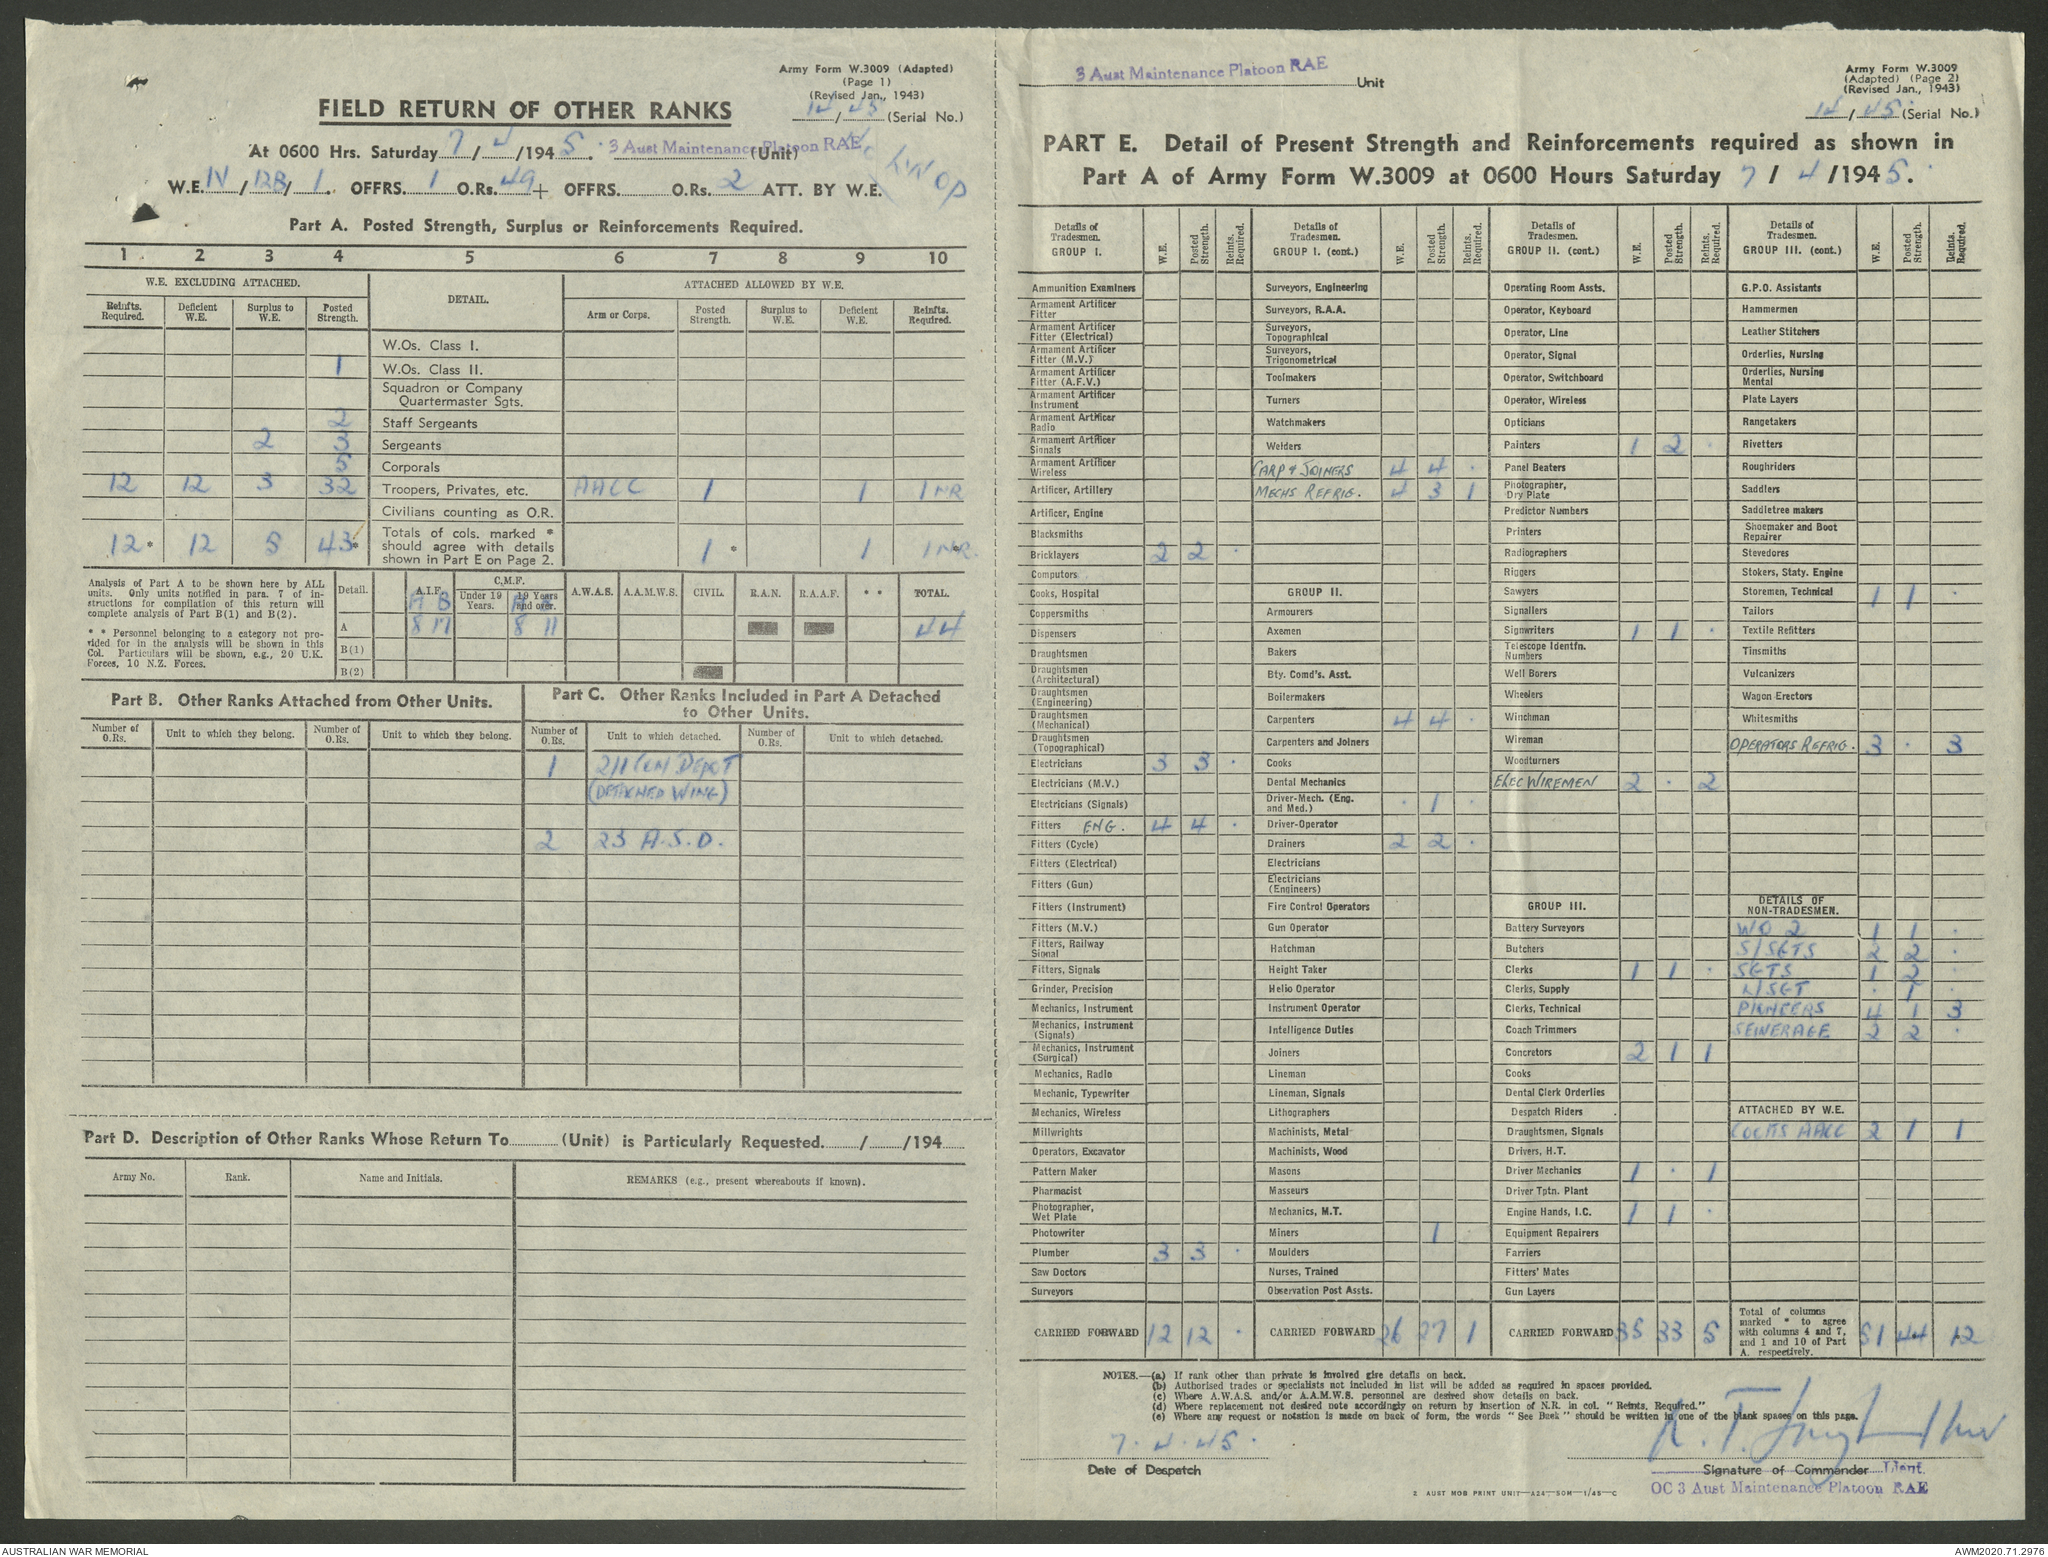 Army Form W.3009 (Adapted)
(Page 1)
(Revised Jan., 1943)
14/45 (Serial No.)
FIELD RETURN OF OTHER RANKS
At 0600 Hrs. Saturday 7/4/1945. 3 Aust Maintenance Platoon RAE (Unit)
W.E. IV/12B/1. OFFRS. 1 O.Rs. 49 + OFFRS. O.Rs. 2 ATT. BY W.E.
Part A. Posted Strength, Surplus or Reinforcements Required.
1 2 3 4 5 6 7 8 9 10
W.E. EXCLUDING ATTACHED. DETAIL. ATTACHED ALLOWED BY W.E.
Reinfts. Required. Deficient W.E. Surplus to W.E. Posted Strength. Arm or Corps. Posted Strength. Surplus to W.E. Deficient W.E. Reinfts. Required.
W.Os. Class I.
1 W.Os. Class II.
Squadron or Company Quartermaster Sgts.
2 Staff Sergeants
2 3 Sergeants
5 Corporals
12 12 3 32 Troopers, Privates, etc. AACC 1 1 1 NR
Civilians counting as O.R.
12* 12 5 43* Totals of cols. marked * should agree with details shown in Part E on Page 2. 1* 1 1 NR*
Analysis of Part A to be shown here by ALL
units. Only units notified in para. 7 of in-
structions for compilation of this return will
complete analysis of Part B(1) and B(2).
* * Personnel belonging to a category not pro-
vided for in the analysis will be shown in this
Col. Particulars will be shown, e.g., 20 U.K.
Forces, 10 N.Z. Forces.
Detail. A.I.F. C.M.F. Under 19 Years. 19 Years and over. A.W.A.S. A.A.M.W.S. CIVIL. R.A.N. R.A.A.F. * * TOTAL.
A B A B
A 8 17 8 11 44
B(1)
B(2)
Part B. Other Ranks Attached from Other Units.
Number of O.Rs. Unit to which they belong. Number of O.Rs. Unit to which they belong.
Part C. Other Ranks Included in Part A Detached
to Other Units.
Number of O.Rs. Unit to which detached. Number of O.Rs. Unit to which detached.
1 2/1 Con Depot
(DETACHED WING)
2 23 A.S.D.
Part D. Description of Other Ranks Whose Return To (Unit) is Particularly Requested. / /194
Army No. Rank. Name and Initials. REMARKS (e.g., present whereabouts if known).
3 Aust Maintenance Platoon RAE Unit
Army Form W.3009
(Adapted) (Page 2)
(Revised Jan., 1943)
14/45. (Serial No.)
PART E. Detail of Present Strength and Reinforcements required as shown in
Part A of Army Form W.3009 at 0600 Hours Saturday 7/4/1945.
Details of Tradesmen. GROUP I. W.E. Posted Strength. Reints. Required.
Ammunition Examiners
Armament Artificer Fitter
Armament Artificer Fitter (Electrical)
Armament Artificer Fitter (M.V.)
Armament Artificer Fitter (A.F.V.)
Armament Artificer Instrument
Armament Artificer Radio
Armament Artificer Signals
Armament Artificer Wireless
Artificer, Artillery
Artificer, Engine
Blacksmiths
Bricklayers 2 2 .
Computors
Cooks, Hospital
Coppersmiths
Dispensers
Draughtsmen
Draughtsmen (Architectural)
Draughtsmen (Engineering)
Draughtsmen (Mechanical)
Draughtsmen (Topographical)
Electricians 3 3 .
Electricians (M.V.)
Electricians (Signals)
Fitters ENG. 4 4 .
Fitters (Cycle)
Fitters (Electrical)
Fitters (Gun)
Fitters (Instrument)
Fitters (M.V.)
Fitters, Railway Signal
Fitters, Signals
Grinder, Precision
Mechanics, Instrument
Mechanics, Instrument (Signals)
Mechanics, Instrument (Surgical)
Mechanics, Radio
Mechanic, Typewriter
Mechanics, Wireless
Millwrights
Operators, Excavator
Pattern Maker
Pharmacist
Photographer, Wet Plate
Photowriter
Plumber 3 3 .
Saw Doctors
Surveyors
CARRIED FORWARD 12 12 .
Details of Tradesmen. GROUP I. (cont.) W.E. Posted Strength. Reints. Required.
Surveyors, Engineering
Surveyors, R.A.A.
Surveyors, Topographical
Surveyors, Trigonometrical
Toolmakers
Turners
Watchmakers
Welders
CARP & JOINERS 4 4 .
MECHS REFRIG. 4 3 1
GROUP II.
Armourers
Axemen
Bakers
Bty. Comd's. Asst.
Boilermakers
Carpenters 4 4 .
Carpenters and Joiners
Cooks
Dental Mechanics
Driver-Mech. (Eng. and Med.) . 1 .
Driver-Operator
Drainers 2 2 .
Electricians
Electricians (Engineers)
Fire Control Operators
Gun Operator
Hatchman
Height Taker
Helio Operator
Instrument Operator
Intelligence Duties
Joiners
Lineman
Lineman, Signals
Lithographers
Machinists, Metal
Machinists, Wood
Masons
Masseurs
Mechanics, M.T.
Miners 1 .
Moulders
Nurses, Trained
Observation Post Assts.
CARRIED FORWARD 26 27 1
Details of Tradesmen. GROUP II. (cont.) W.E. Posted Strength. Reints Required.
Operating Room Assts.
Operator, Keyboard
Operator, Line
Operator, Signal
Operator, Switchboard
Operator, Wireless
Opticians
Painters 1 2 .
Panel Beaters
Photographer, Dry Plate
Predictor Numbers
Printers
Radiographers
Riggers
Sawyers
Signallers
Signwriters 1 1 .
Telescope Identfn. Numbers
Well Borers
Wheelers
Winchman
Wireman
Woodturners
ELEC WIREMEN 2 . 2
GROUP III.
Battery Surveyors
Butchers
Clerks 1 1 .
Clerks, Supply
Clerks, Technical
Coach Trimmers
Concretors 2 1 1
Cooks
Dental Clerk Orderlies
Despatch Riders
Draughtsmen, Signals
Drivers, H.T.
Driver Mechanics 1 . 1
Driver Tptn. Plant
Engine Hands, I.C. 1 1 .
Equipment Repairers
Farriers
Fitters' Mates
Gun Layers
CARRIED FORWARD 35 33 5
Details of Tradesmen. GROUP III. (cont.) W.E. Posted Strength. Reints. Required.
G.P.O. Assistants
Hammermen
Leather Stitchers
Orderlies, Nursing
Orderlies, Nursing Mental
Plate Layers
Rangetakers
Rivetters
Roughriders
Saddlers
Saddletree makers
Shoemaker and Boot Repairer
Stevedores
Stokers, Staty. Engine
Storemen, Technical 1 1 .
Tailors
Textile Refitters
Tinsmiths
Vulcanizers
Wagon Erectors
Whitesmiths
OPERATORS REFRIG. 3 . 3
DETAILS OF NON-TRADESMEN.
WO 2 1 1 .
S/SGTS 2 2 .
SGTS 1 2 .
L/SGT . 1 .
PIONEERS 4 1 3
SEWERAGE 2 2 .
ATTACHED BY W.E.
COOKS AACC 2 1 1
Total of columns marked * to agree with columns 4 and 7, and 1 and 10 of Part A. respectively. 51 44 12
NOTES.—(a) If rank other than private is involved give details on back.
(b) Authorised trades or specialists not included in list will be added as required in spaces provided.
(c) Where A.W.A.S. and/or A.A.M.W.S. personnel are desired show details on back.
(d) Where replacement not desired note accordingly on return by insertion of N.R. in col. "Reints. Required."
(e) Where any request or notation is made on back of form, the words "See Back" should be written in one of the blank spaces on this page.
7.4.45.
Date of Despatch
Signature of Commander Lieut.
OC 3 Aust Maintenance Platoon RAE
2 AUST MOB PRINT UNIT—A24—50M—1/45—C
AUSTRALIAN WAR MEMORIAL
AWM2020.71.2976